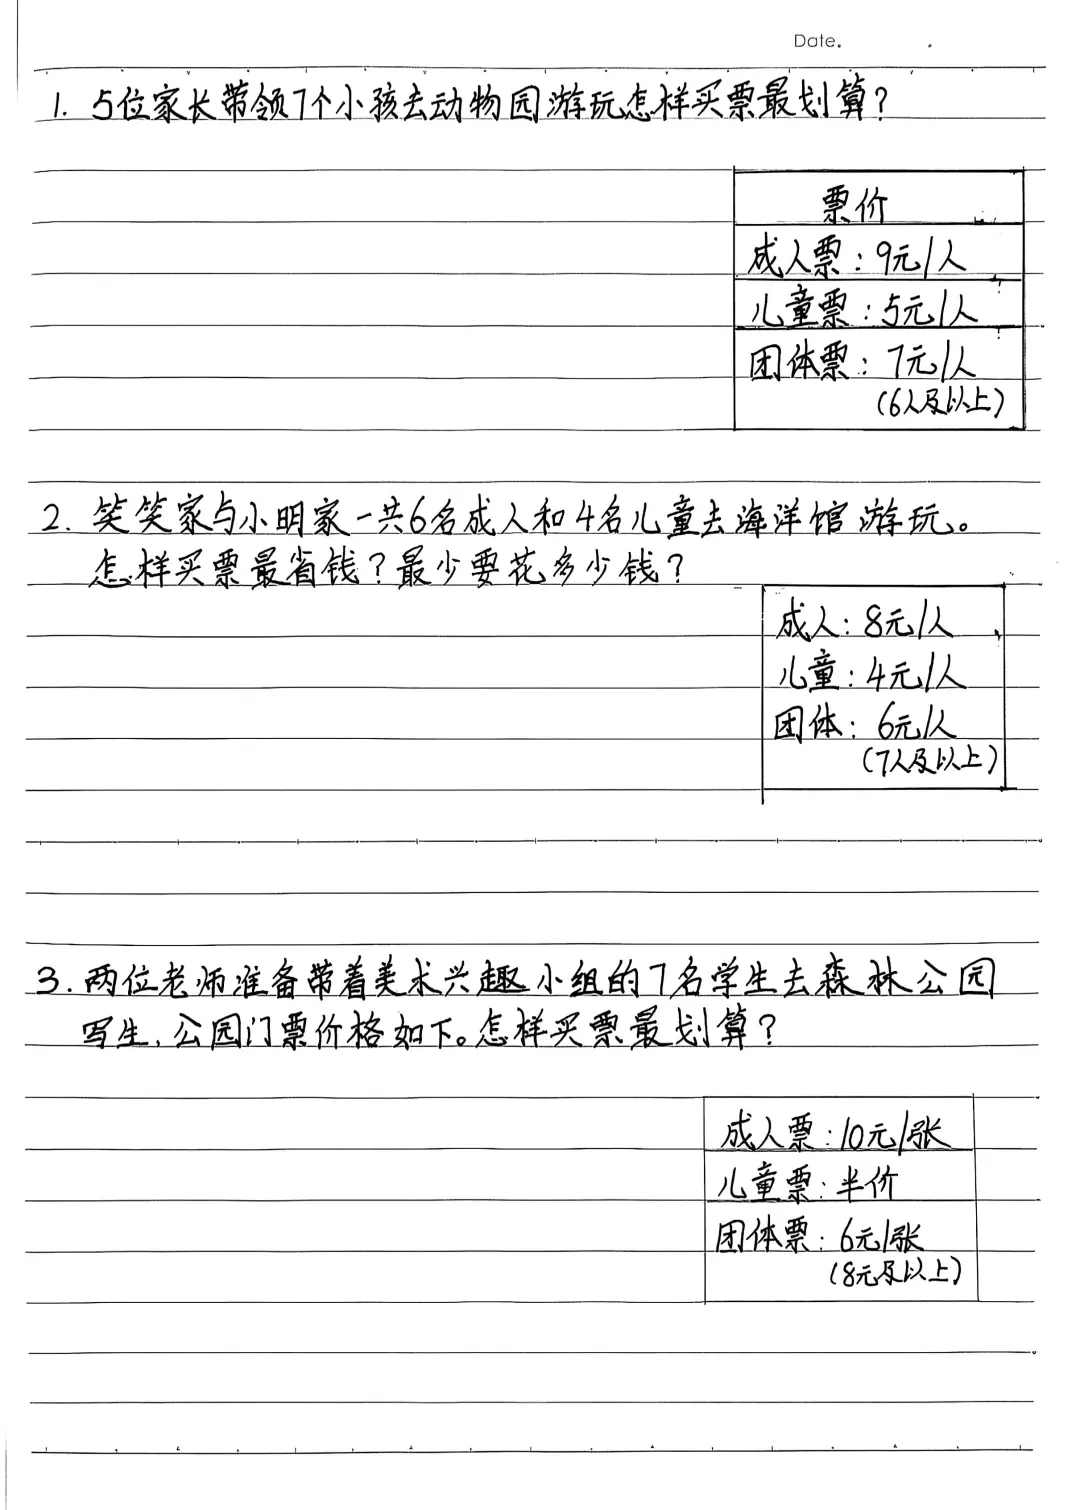 Date.
1. 5位家长带领7个小孩去动物园游玩怎样买票最划算?
票价
成人票:9元/人
儿童票:5元/人
团体票:7元/人
(6人及以上)
2. 笑笑家与小明家一共6名成人和4名儿童去海洋馆游玩。
怎样买票最省钱?最少要花多少钱?
成人:8元/人
儿童:4元/人
团体:6元/人
(7人及以上)
3. 两位老师准备带着美术兴趣小组的7名学生去森林公园
写生,公园门票价格如下。怎样买票最划算?
成人票:10元/张
儿童票:半价
团体票:6元/张
(8元及以上)